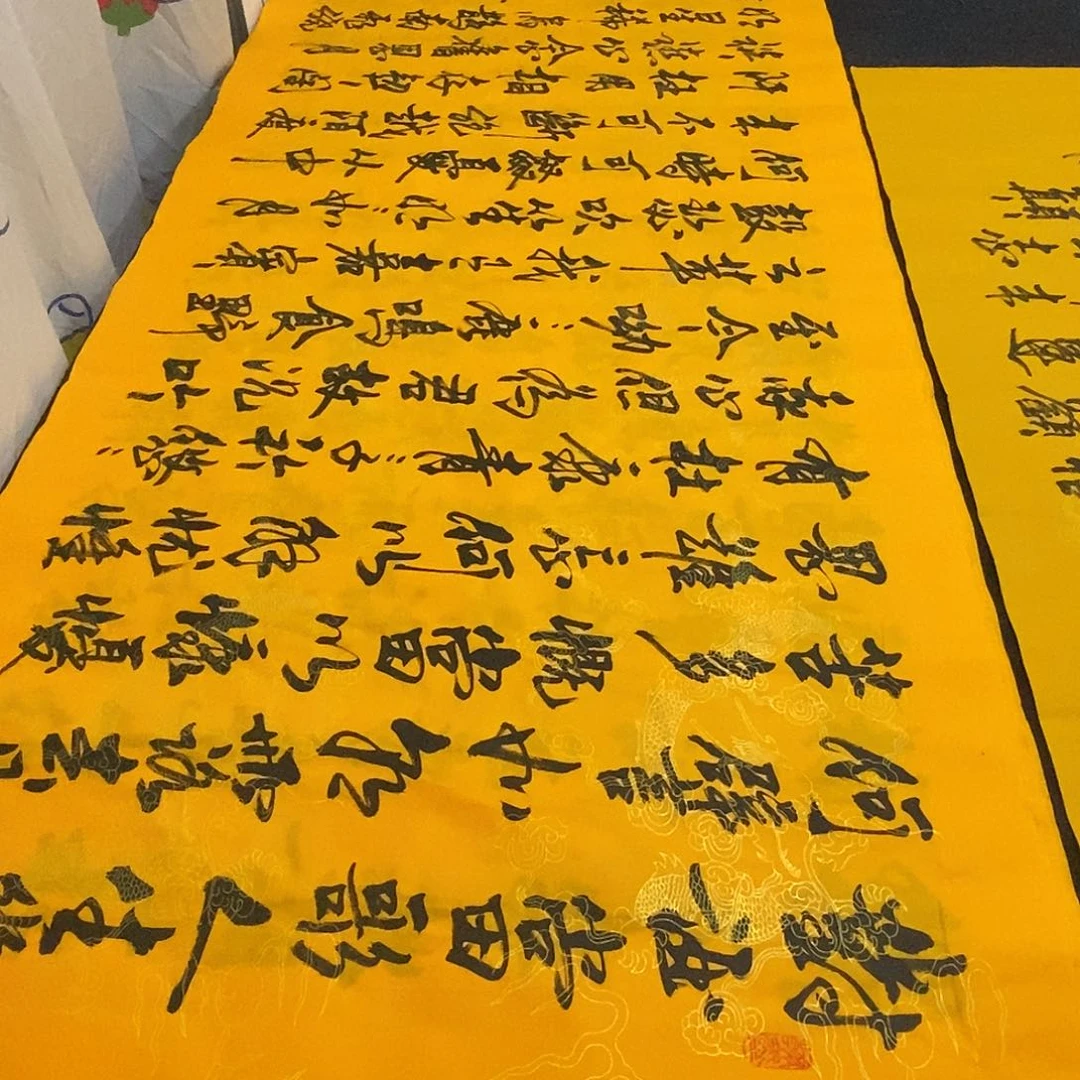 對酒當歌人生幾
何譬如朝露去日
苦多慨當以慷憂
思難忘何以解忧惟
有杜康青青子衿悠悠
我心但為君故沈吟
至今呦呦鹿鳴食野
之苹我有嘉賓
鼓瑟吹笙明明如月
何時可掇憂從中
來不可斷絕越陌度
阡枉用相存契闊
談讌心念舊恩月
明星稀烏鵲南飛繞